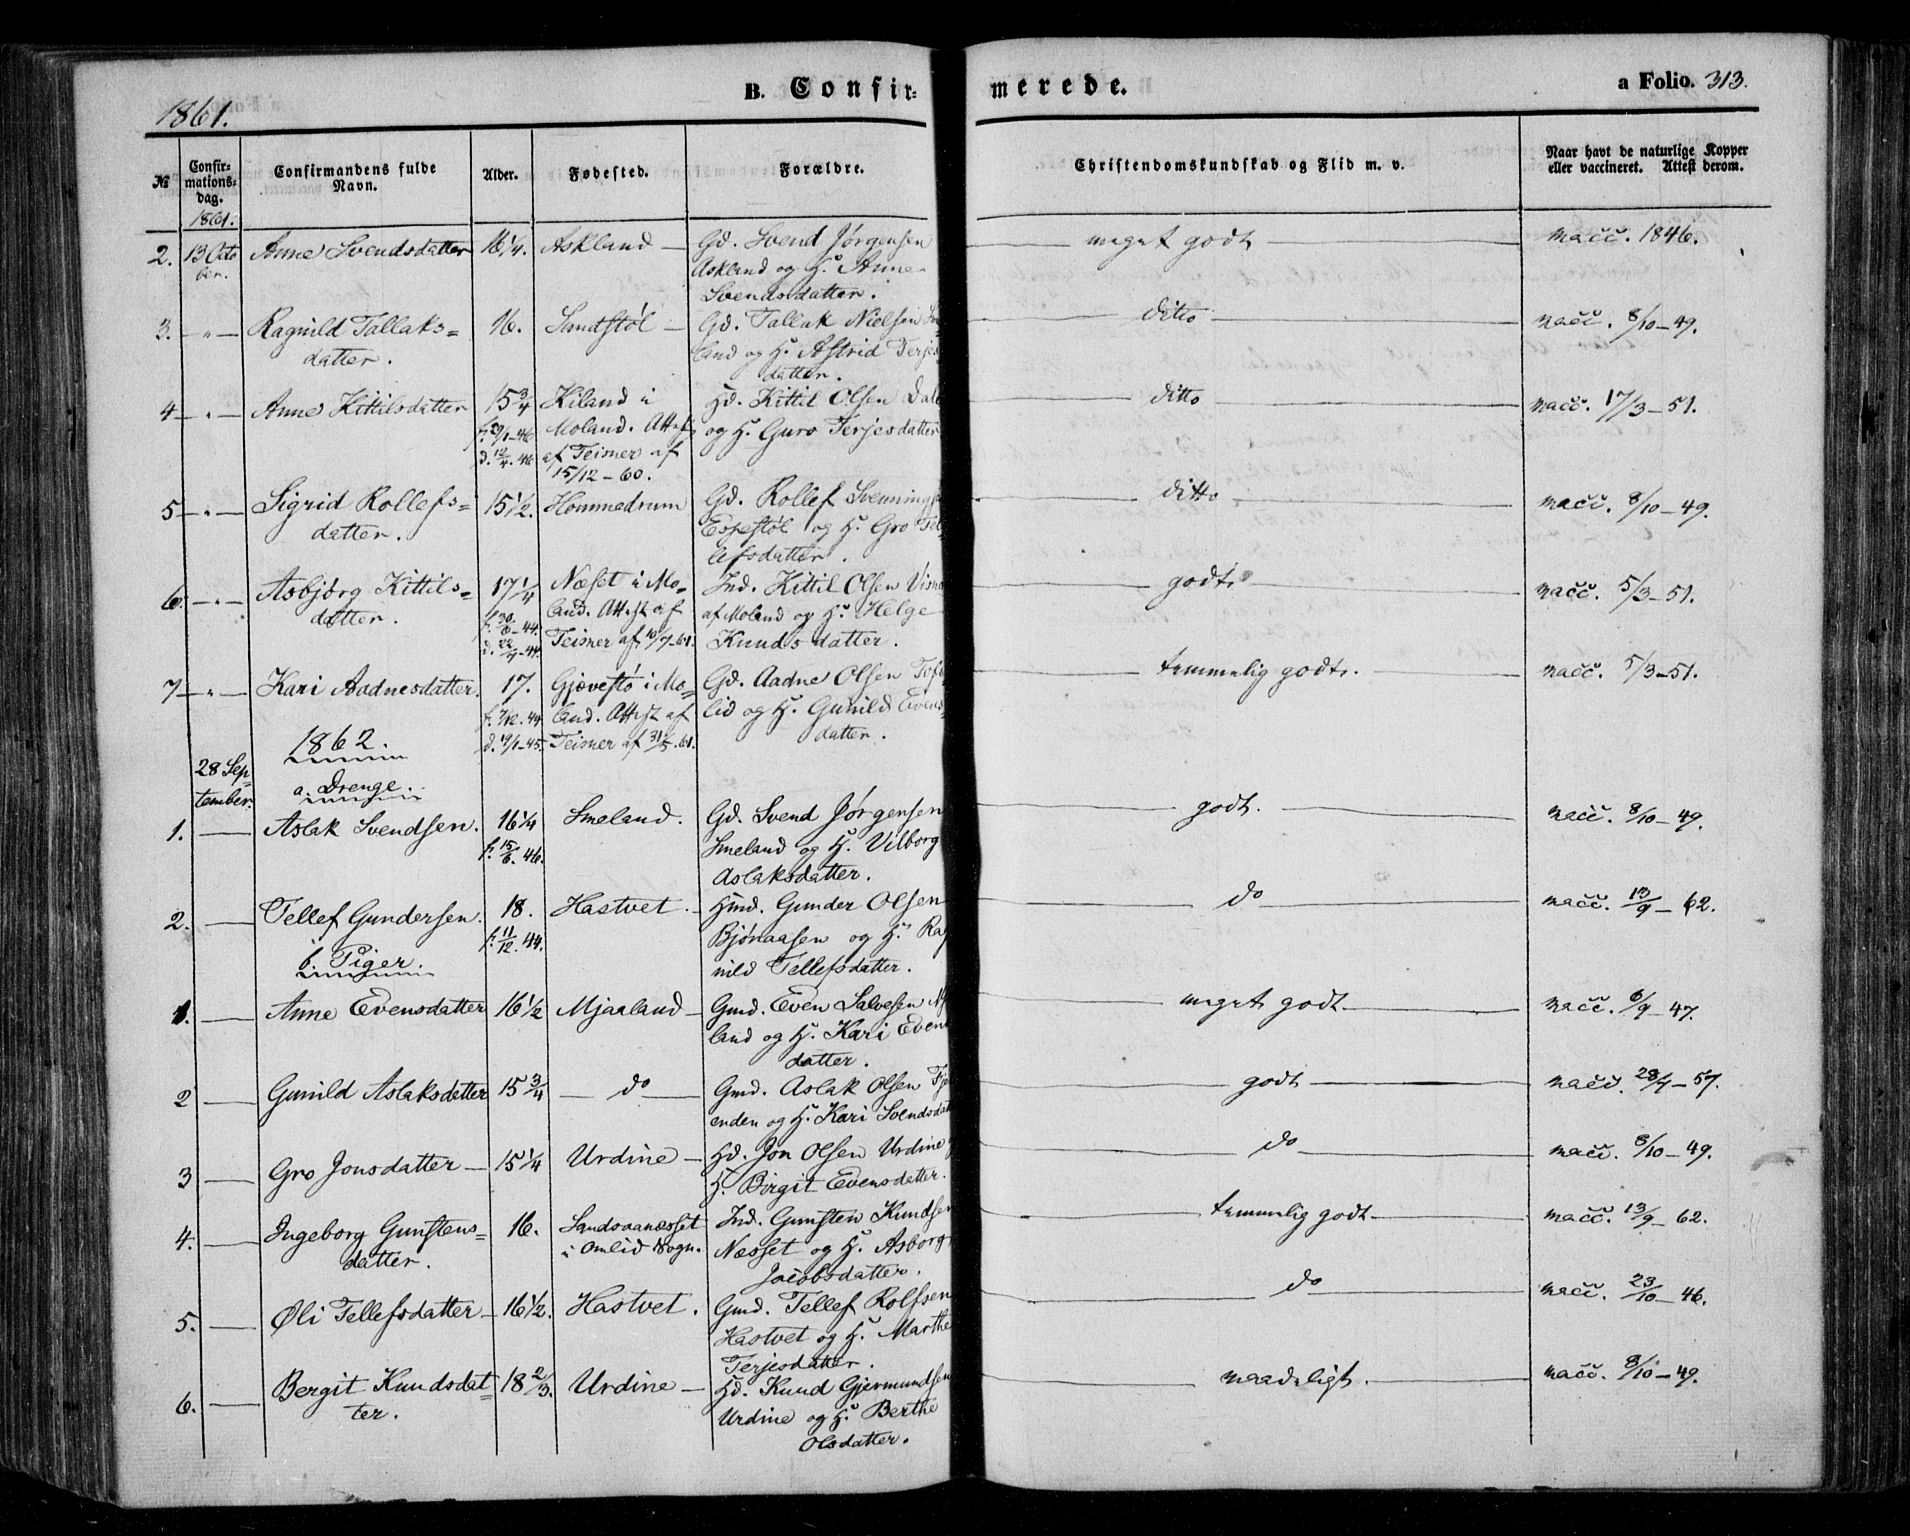 1861.
B. Confir- merede. a Folio. 313.
№ Confir-mations-dag. Confirmandens fulde Navn. Alder. Fødested. Forældre. Christendomskundskab og Flid m. v. Naar havt de naturlige Kopper eller vaccineret. Attest derom.
1861.
2. 13 Octo Anne Svendsdatter 16 1/4. Askland — Gd. Svend Jørgensen meget godt vacc. 1846.
ber. Askland og H. Anne
Svendsdatter.
3. — " — Ragnild Tallaks= 16. Sandstøl — Gd. Tallak Nielsen ditto vacc. 8/10 — 49.
datter. land og H. Astrid Terjes
datter.
4 — " — Anne Kittilsdatter 15 3/4 Kiland i Hd. Kittil Olsen ditto vacc. 17/3 — 51.
f. 29/1 — 46 Moland. Attest og H. Guro Terjesdatter
d. 12/4. 46 af Teisner af
15/12 — 60.
5 — " — Sigrid Rollefs= 15 1/2. Hommedrum Gd. Rollef Svennings ditto vacc. 8/10 — 49.
datter. Espestøl og H. Gro Tel
lefsdatter.
6. — " — Asbjørg Kittils= 17 1/4 Næset i Mo= Ind. Kittil Olsen godt. vacc. 5/3 — 51.
datter. land. Attest af af Moland og H. Helge
d. 22/9 — 44. Teisner af 10/7 — 61. Knudsdatter.
7 — " — Kari Aadnesdatter. 17. Gjøvestø i Mo= Gd. Aadne Olsen temmelig godt. vacc. 5/3 — 51.
land. Attest af lid og H. Gunild Evens
d. 19/1 — 45. Teisner af 31/5. 61. datter.
1862.
28 Sep=
tember. a. Drenge.
1. — Aslak Svendsen. 16 1/4 Smeland. Gd. Svend Jørgensen godt. vacc. 8/10 — 49.
f. 15/6. 46. Smeland og H. Vilborg
Aslaksdatter.
2. — Tellef Gundersen. 18. Hastvet. — Hmd. Gunder Olsen do vacc. 13/9 — 62.
f. 11/12. 44. Bjønaasen og H. Rag
b. Piger. nild Tellefsdatter.
1. — Anne Evensdatter 16 1/2 Mjaaland — Gmd. Even Salvesen meget godt. vacc. 6/9 — 47.
land og H. Kari Evens
datter.
2 — Gunild Aslaksdatter 15 3/4 — do — Gmd. Aslak Olsen godt vacc. 28/9 — 57.
enden og H. Kari Svendsdat
3 — Gro Jonsdatter — 15 1/4 Urdine — Hd. Jon Olsen Urdine do vacc. 8/10 — 49.
H. Birgit Evensdatter.
4. — Ingeborg Gunstens= 16. Sandvaanæsset Ind. Gunsten Knudsen temmelig godt. vacc. 13/9 — 62.
datter. i Omlid Sogn. Næsset og H. Asborg
Jacobsdatter.
5. — Øli Tellefsdatter — 16 1/2. Hastvet. Gmd. Tellef Rolfsen do vacc. 23/10 — 46.
Hastvet og H. Marthe
Terjesdatter.
6. — Bergit Knudsdat= 18 2/3. Urdine — Hd. Knud Gjermundsen maadeligt. vacc. 8/10 — 49.
ter. Urdine og H. Berthe
Olsdatter.